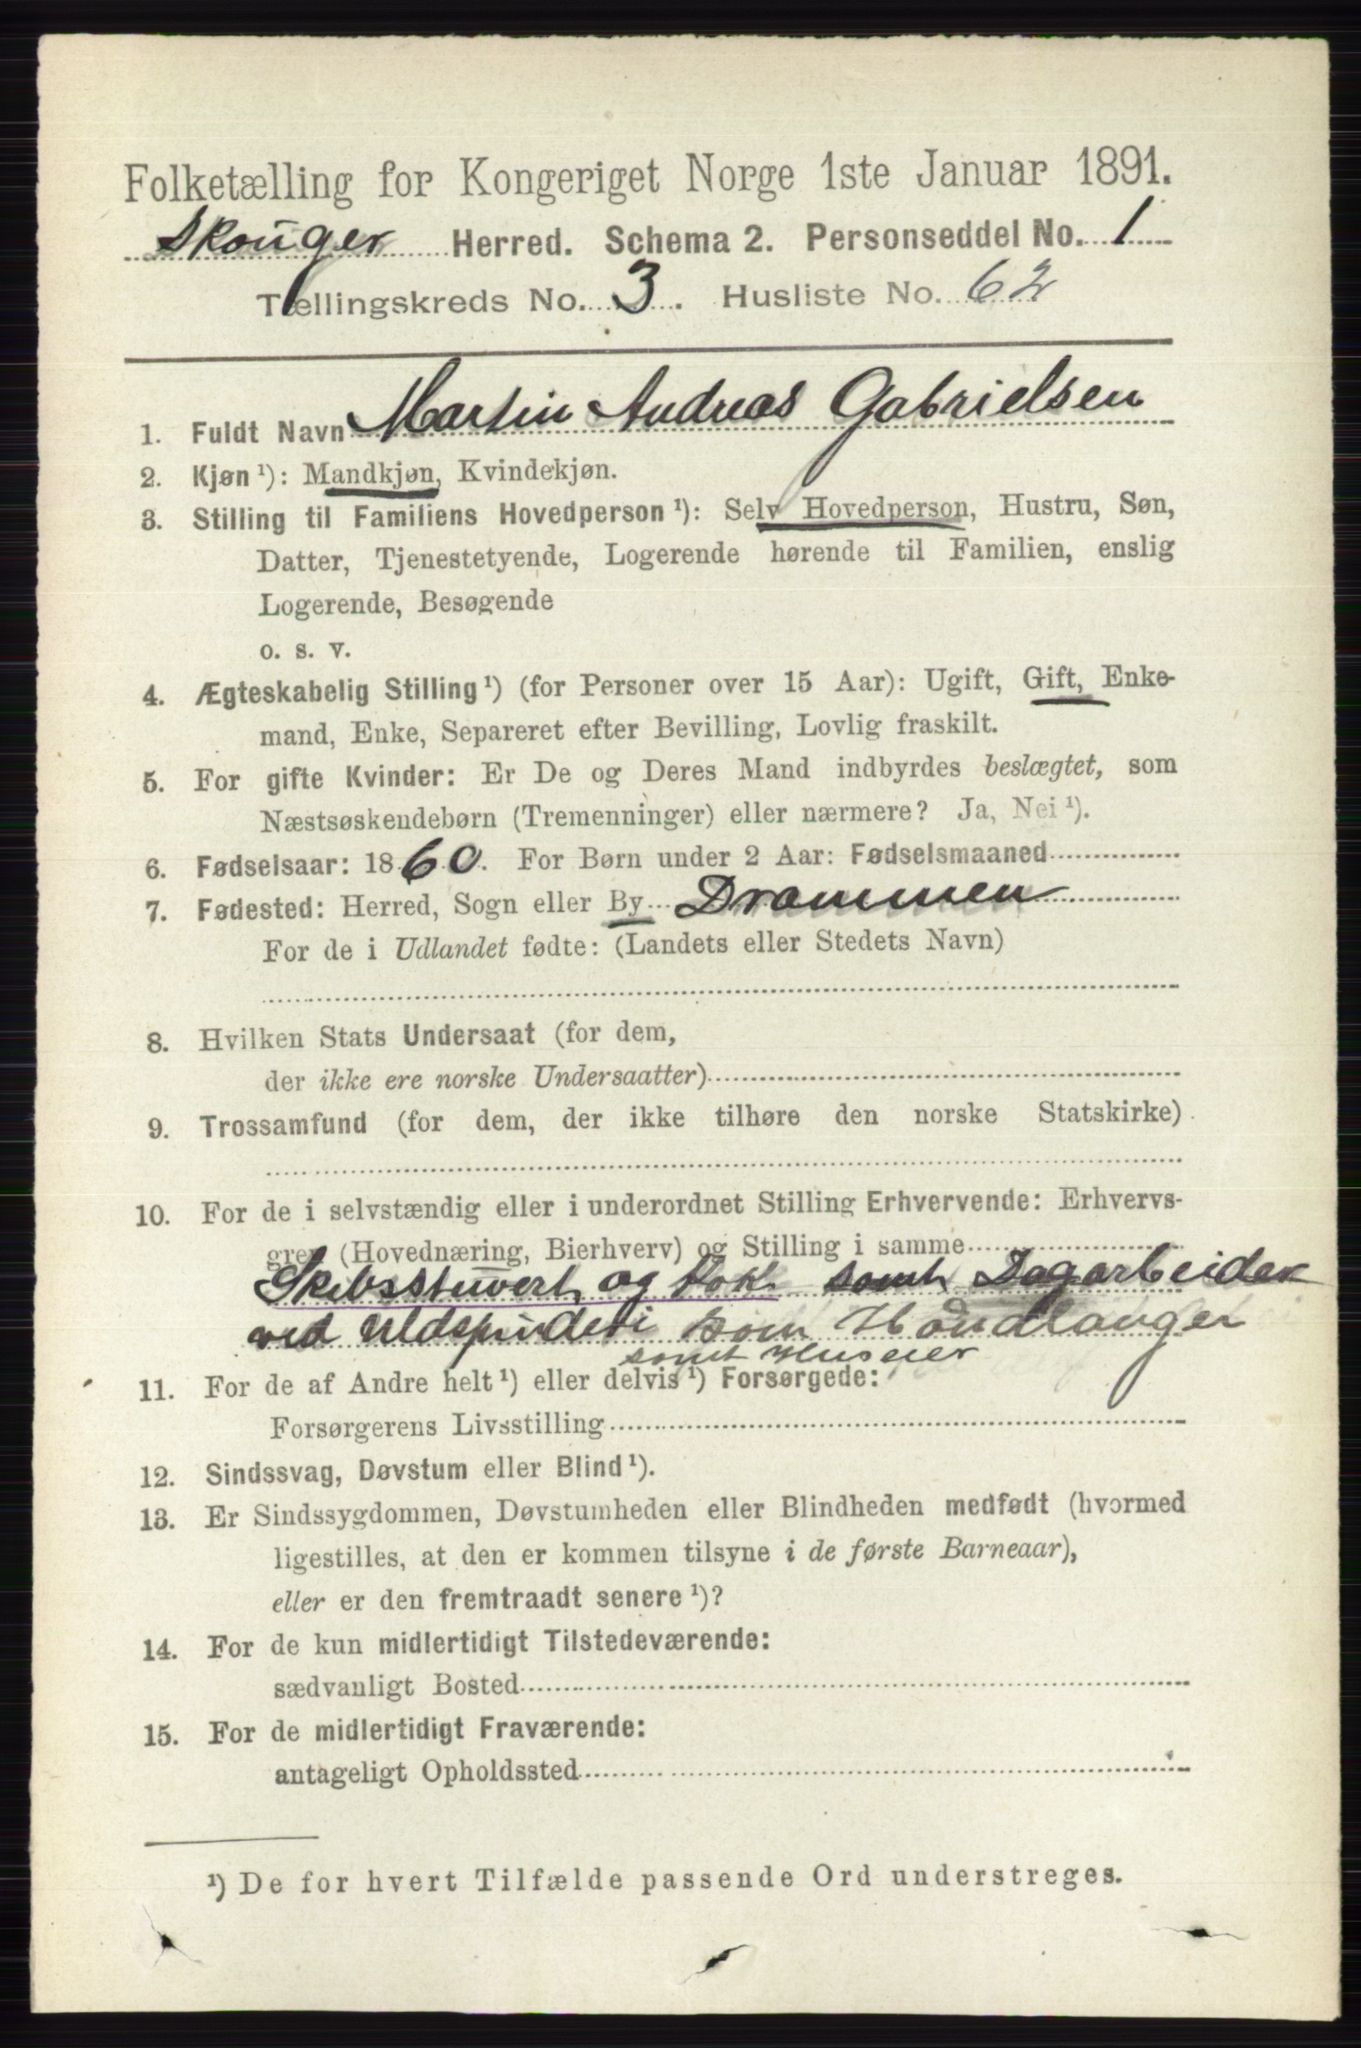 Folketælling for Kongeriget Norge 1ste Januar 1891.
Skouger Herred. Schema 2. Personseddel No. 1
Tællingskreds No. 3. Husliste No. 62
1. Fuldt Navn Martin Andreas Gabrielsen
2. Kjøn ¹): Mandkjøn, Kvindekjøn.
3. Stilling til Familiens Hovedperson ¹): Selv Hovedperson, Hustru, Søn,
Datter, Tjenestetyende, Logerende hørende til Familien, enslig
Logerende, Besøgende
o. s. v.
4. Ægteskabelig Stilling ¹) (for Personer over 15 Aar): Ugift, Gift, Enke-
mand, Enke, Separeret efter Bevilling, Lovlig fraskilt.
5. For gifte Kvinder: Er De og Deres Mand indbyrdes beslægtet, som
Næstsøskendebørn (Tremenninger) eller nærmere? Ja, Nei ¹).
6. Fødselsaar: 1860. For Børn under 2 Aar: Fødselsmaaned
7. Fødested: Herred, Sogn eller By Drammen
For de i Udlandet fødte: (Landets eller Stedets Navn)
8. Hvilken Stats Undersaat (for dem,
der ikke ere norske Undersaatter)
9. Trossamfund (for dem, der ikke tilhøre den norske Statskirke)
10. For de i selvstændig eller i underordnet Stilling Erhvervende: Erhvervs-
gren (Hovednæring, Bierhverv) og Stilling i samme
Skibsstuvert og Kok samt Dagarbeider
ved Uldspinderi som Haandlanger
samt Huseier
11. For de af Andre helt ¹) eller delvis ¹) Forsørgede:
Forsørgerens Livsstilling
12. Sindssvag, Døvstum eller Blind ¹).
13. Er Sindssygdommen, Døvstumheden eller Blindheden medfødt (hvormed
ligestilles, at den er kommen tilsyne i de første Barneaar),
eller er den fremtraadt senere ¹)?
14. For de kun midlertidigt Tilstedeværende:
sædvanligt Bosted
15. For de midlertidigt Fraværende:
antageligt Opholdssted
¹) De for hvert Tilfælde passende Ord understreges.